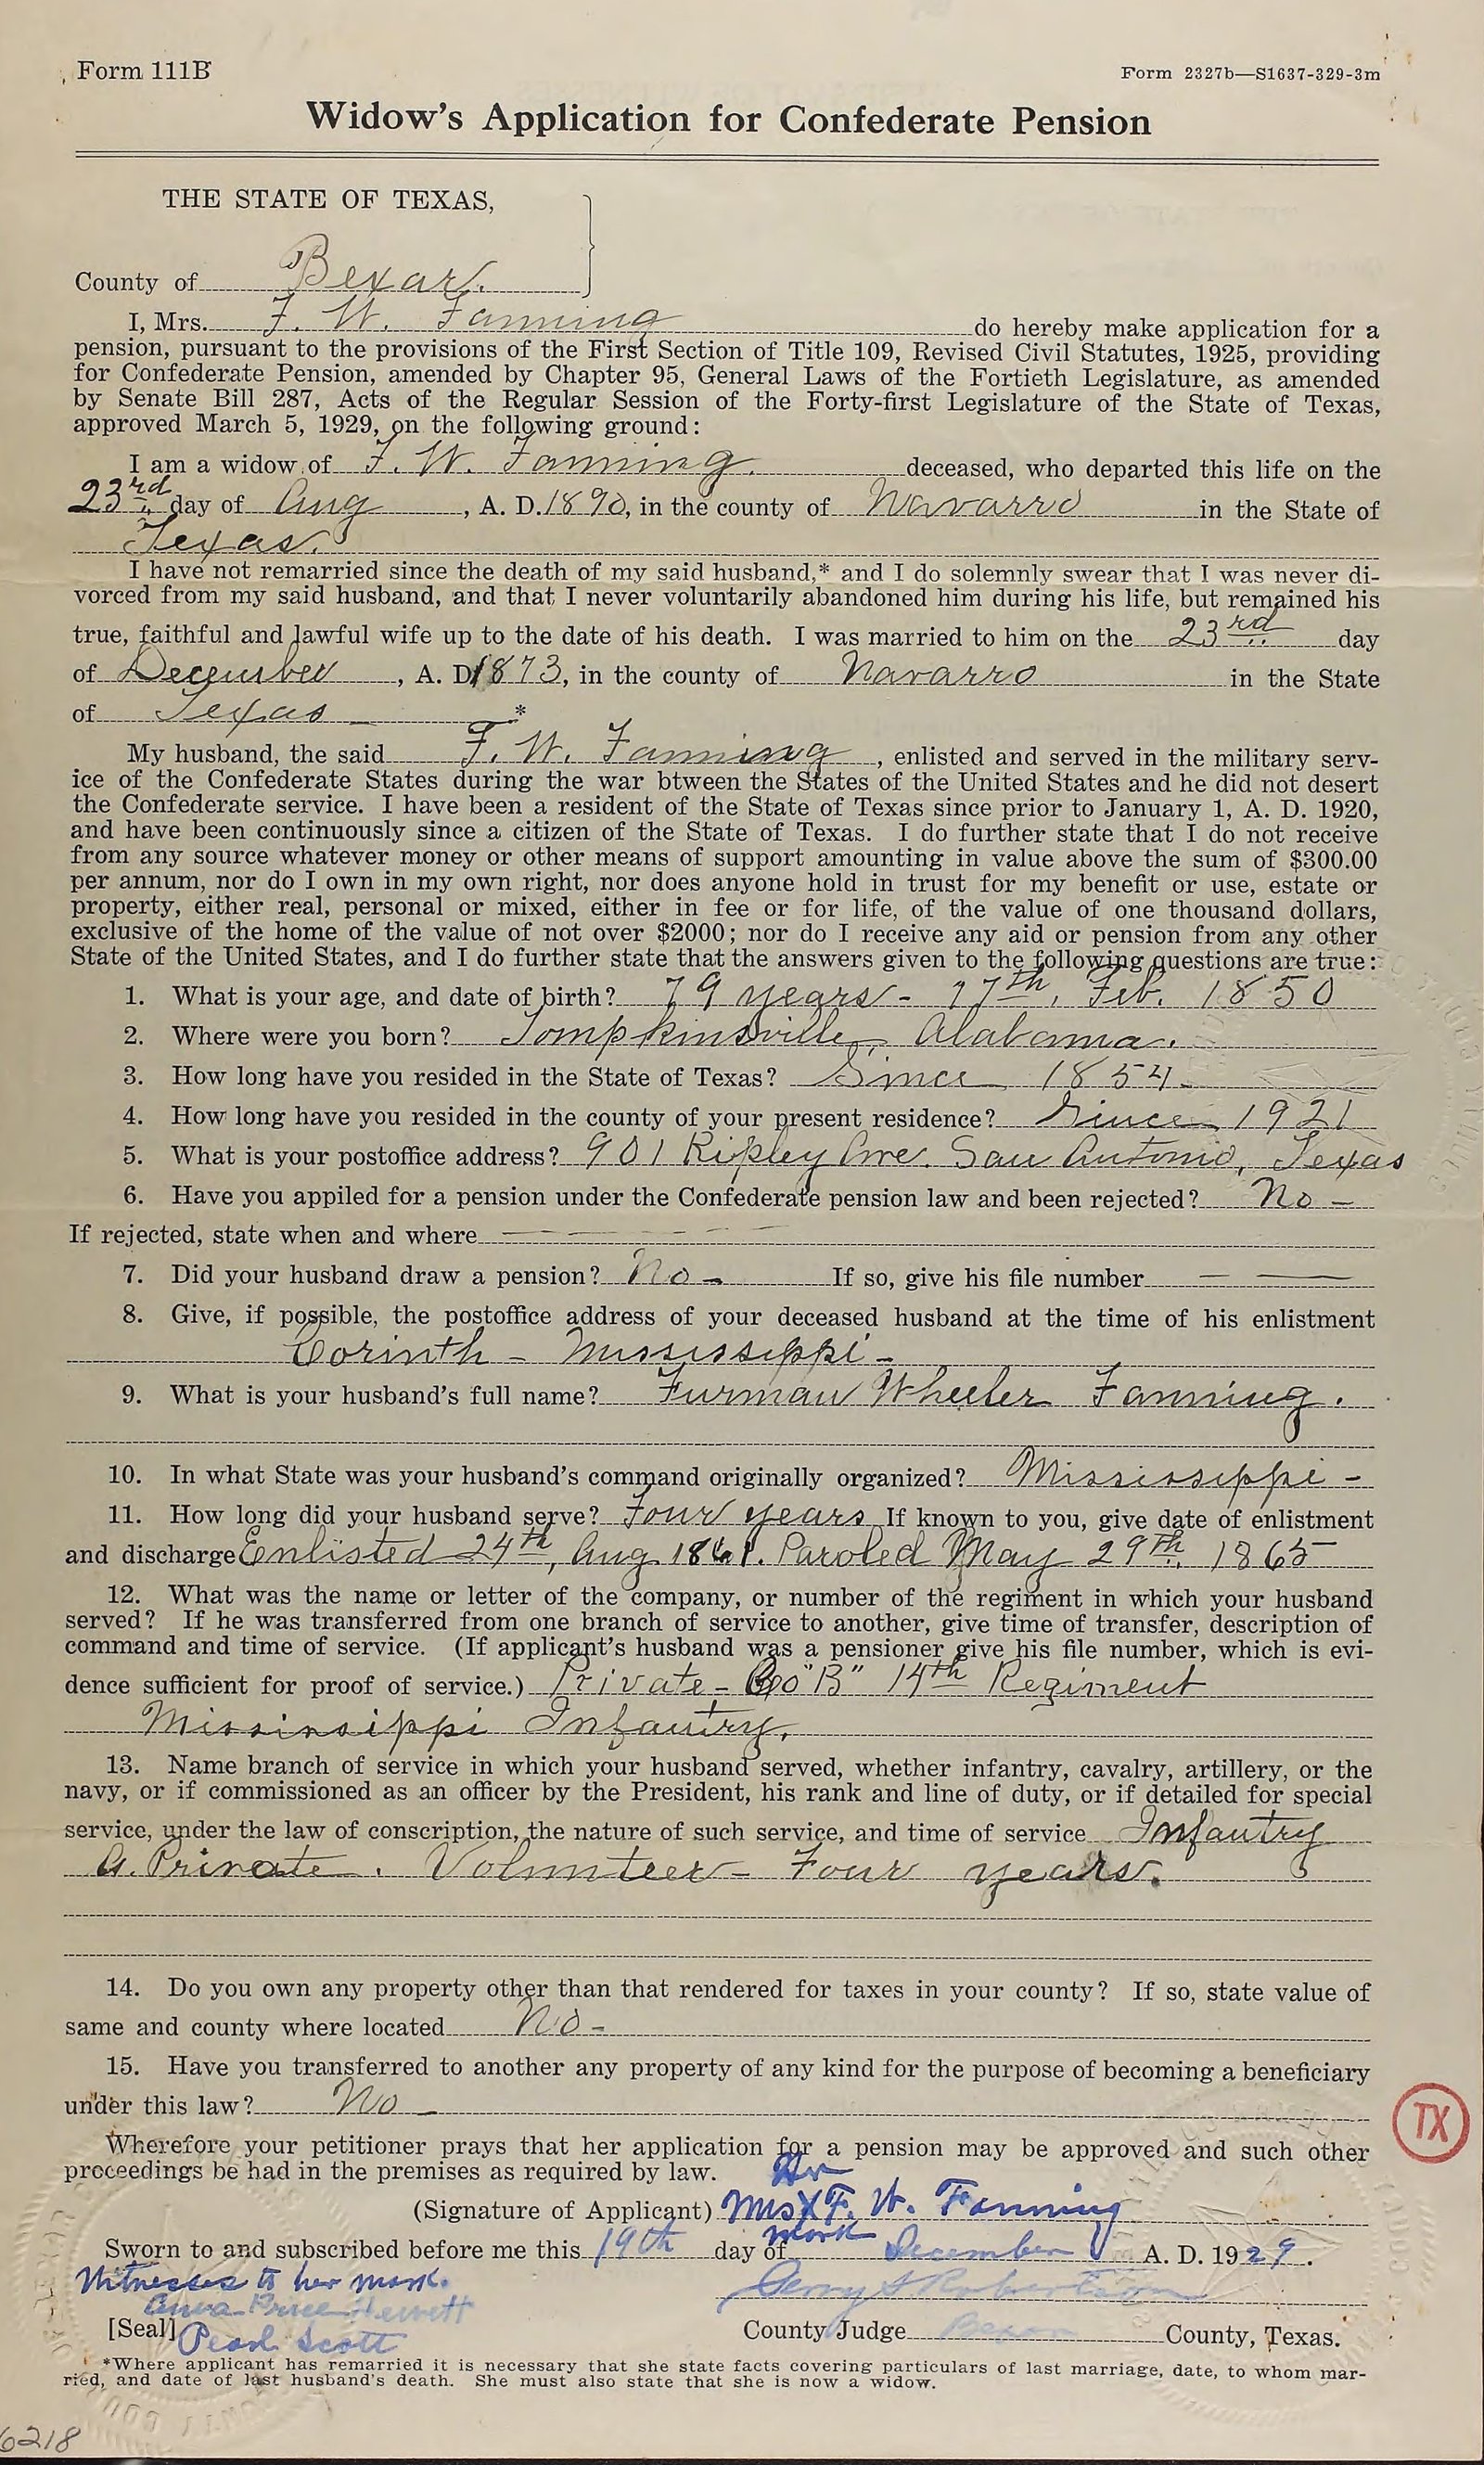 Form 111B
Form 2327b—S1637-329-3m
Widow's Application for Confederate Pension
THE STATE OF TEXAS,
County of Bexar.
I, Mrs. F. W. Fanning do hereby make application for a
pension, pursuant to the provisions of the First Section of Title 109, Revised Civil Statutes, 1925, providing
for Confederate Pension, amended by Chapter 95, General Laws of the Fortieth Legislature, as amended
by Senate Bill 287, Acts of the Regular Session of the Forty-first Legislature of the State of Texas,
approved March 5, 1929, on the following ground:
I am a widow of F. W. Fanning. deceased, who departed this life on the
23rd day of Aug, A. D. 1890, in the county of Navarro in the State of
Texas.
I have not remarried since the death of my said husband,* and I do solemnly swear that I was never di-
vorced from my said husband, and that I never voluntarily abandoned him during his life, but remained his
true, faithful and lawful wife up to the date of his death. I was married to him on the 23rd day
of December, A. D. 1873, in the county of Navarro in the State
of Texas *
My husband, the said F. W. Fanning, enlisted and served in the military serv-
ice of the Confederate States during the war btween the States of the United States and he did not desert
the Confederate service. I have been a resident of the State of Texas since prior to January 1, A. D. 1920,
and have been continuously since a citizen of the State of Texas. I do further state that I do not receive
from any source whatever money or other means of support amounting in value above the sum of $300.00
per annum, nor do I own in my own right, nor does anyone hold in trust for my benefit or use, estate or
property, either real, personal or mixed, either in fee or for life, of the value of one thousand dollars,
exclusive of the home of the value of not over $2000; nor do I receive any aid or pension from any other
State of the United States, and I do further state that the answers given to the following questions are true:
1. What is your age, and date of birth? 79 years - 17th, Feb. 1850
2. Where were you born? Tompkinsville, Alabama.
3. How long have you resided in the State of Texas? Since 1854.
4. How long have you resided in the county of your present residence? Since 1921
5. What is your postoffice address? 901 Ripley Ave. San Antonio, Texas
6. Have you appiled for a pension under the Confederate pension law and been rejected? No -
If rejected, state when and where
7. Did your husband draw a pension? No - If so, give his file number
8. Give, if possible, the postoffice address of your deceased husband at the time of his enlistment
Corinth - Mississippi -
9. What is your husband's full name? Furman Wheeler Fanning.
10. In what State was your husband's command originally organized? Mississippi -
11. How long did your husband serve? Four years If known to you, give date of enlistment
and discharge Enlisted 24th, Aug. 1861. Paroled May 29th, 1865
12. What was the name or letter of the company, or number of the regiment in which your husband
served? If he was transferred from one branch of service to another, give time of transfer, description of
command and time of service. (If applicant's husband was a pensioner give his file number, which is evi-
dence sufficient for proof of service.) Private - Co "B" 14th Regiment
Mississippi Infantry.
13. Name branch of service in which your husband served, whether infantry, cavalry, artillery, or the
navy, or if commissioned as an officer by the President, his rank and line of duty, or if detailed for special
service, under the law of conscription, the nature of such service, and time of service Infantry
a. Private. Volunteer - Four years.
14. Do you own any property other than that rendered for taxes in your county? If so, state value of
same and county where located No -
15. Have you transferred to another any property of any kind for the purpose of becoming a beneficiary
under this law? No -
TX
Wherefore your petitioner prays that her application for a pension may be approved and such other
proceedings be had in the premises as required by law.
Her
(Signature of Applicant) Mrs X F. W. Fanning
mark
Sworn to and subscribed before me this 19th day of December A. D. 1929.
Witnesses to her mark.
[Seal] Pearl Scott
County Judge Bexar County, Texas.
*Where applicant has remarried it is necessary that she state facts covering particulars of last marriage, date, to whom mar-
ried, and date of last husband's death. She must also state that she is now a widow.
6218